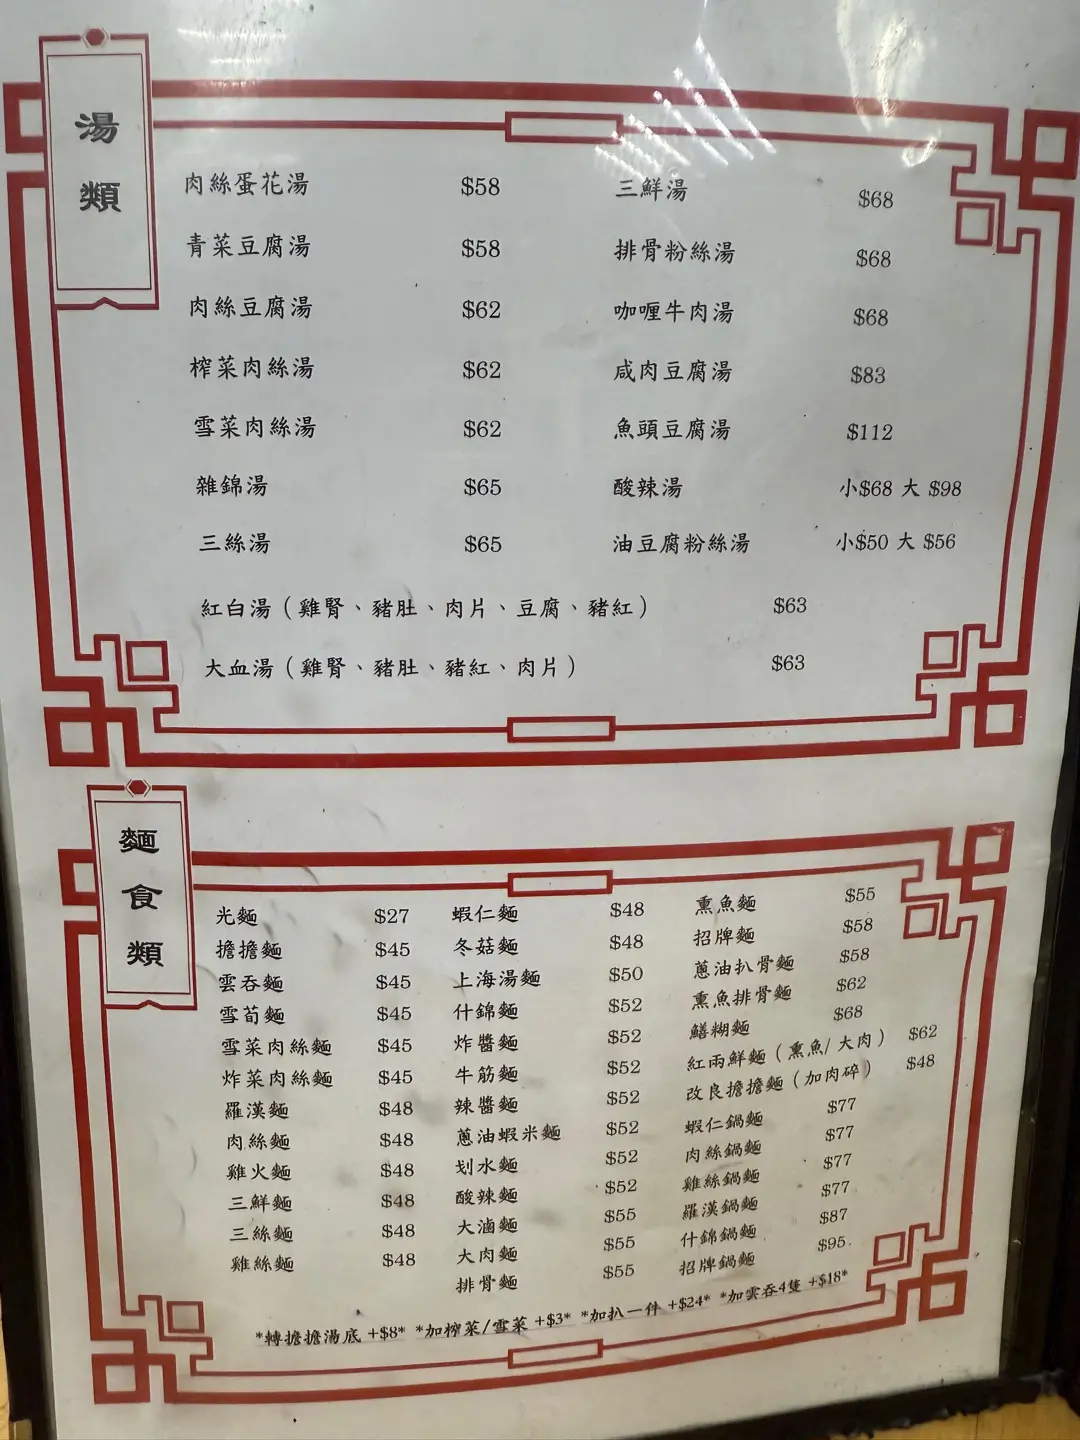 湯類
肉絲蛋花湯 $58
青菜豆腐湯 $58
肉絲豆腐湯 $62
榨菜肉絲湯 $62
雪菜肉絲湯 $62
雜錦湯 $65
三絲湯 $65
三鮮湯 $68
排骨粉絲湯 $68
咖喱牛肉湯 $68
咸肉豆腐湯 $83
魚頭豆腐湯 $112
酸辣湯 小$68 大 $98
油豆腐粉絲湯 小$50 大 $56
紅白湯（雞腎、豬肚、肉片、豆腐、豬紅） $63
大血湯（雞腎、豬肚、豬紅、肉片） $63
麵食類
光麵 $27
擔擔麵 $45
雲吞麵 $45
雪荀麵 $45
雪菜肉絲麵 $45
炸菜肉絲麵 $45
羅漢麵 $48
肉絲麵 $48
雞火麵 $48
三鮮麵 $48
三絲麵 $48
雞絲麵 $48
蝦仁麵 $48
冬菇麵 $48
上海湯麵 $50
什錦麵 $52
炸醬麵 $52
牛筋麵 $52
辣醬麵 $52
蔥油蝦米麵 $52
划水麵 $52
酸辣麵 $52
大滷麵 $55
大肉麵 $55
排骨麵 $55
熏魚麵 $55
招牌麵 $58
蔥油扒骨麵 $58
熏魚排骨麵 $62
鱔糊麵 $68
紅兩鮮麵（熏魚/大肉） $62
改良擔擔麵（加肉碎） $48
蝦仁鍋麵 $77
肉絲鍋麵 $77
雞絲鍋麵 $77
羅漢鍋麵 $77
什錦鍋麵 $87
招牌鍋麵 $95
*轉擔擔湯底 +$8* *加榨菜/雪菜 +$3* *加扒一件 +$24* *加雲吞4隻 +$18*